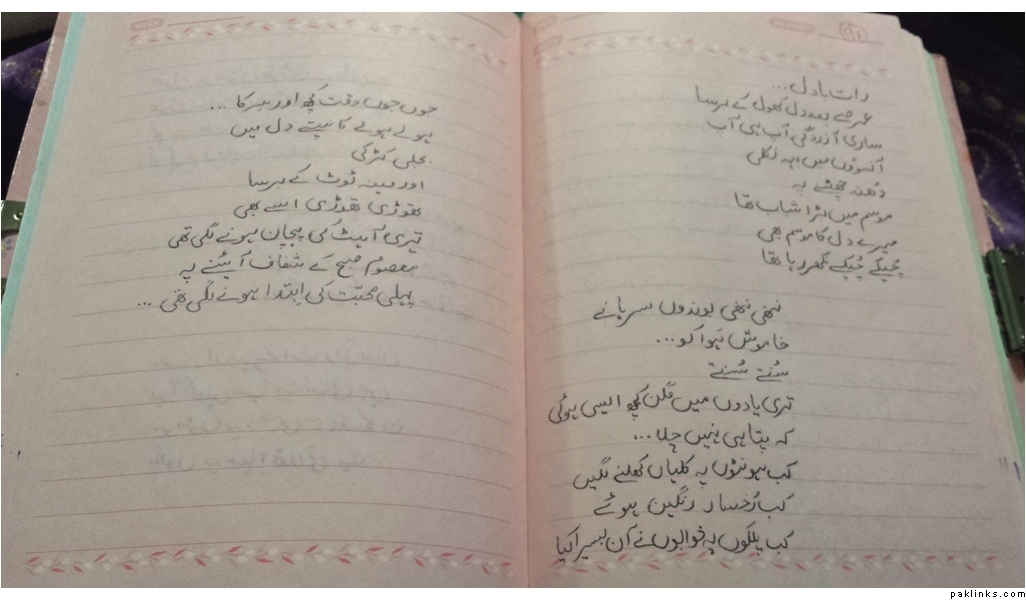 91
رات بادل...
عرصے بعد دل کھول کے برسا
ساری آزردگی آپ ہی آپ
آنسوؤں میں بہہ نکلی
دُھند چھٹنے پہ
موسم میں بڑا شباب تھا
میرے دل کا موسم بھی
چُپکے چُپکے نکھر رہا تھا
ننھی ننھی بوندوں سرہانے
خاموش ہَوا کو...
سُنتے سُنتے
تری یادوں میں مگن کچھ ایسی ہوئی
کہ پتا ہی نہیں چلا...
کب ہونٹوں پہ کلیاں کھلنے لگیں
کب رُخسار رنگین ہوئے
کب پلکوں پہ خوابوں نے آن بسیرا کیا
جوں جوں وقت کچھ اور سرکا...
ہولے ہولے کانپتے دل میں
بجلی کڑکی
اور مینہ ٹوٹ کے برسا
تھوڑی تھوڑی اسے بھی
تیری آہٹ کی پہچان ہونے لگی تھی
معصوم صبح کے شفاف آئینے پہ
پہلی محبّت کی ابتدا ہونے لگی تھی...
paklinks.com